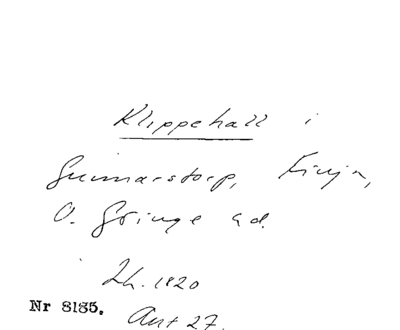 Klippehall i
Gunnarstorp, Finja,
O. Göinge hd.
Lh. 1820
Nr 8185. Ant 27.